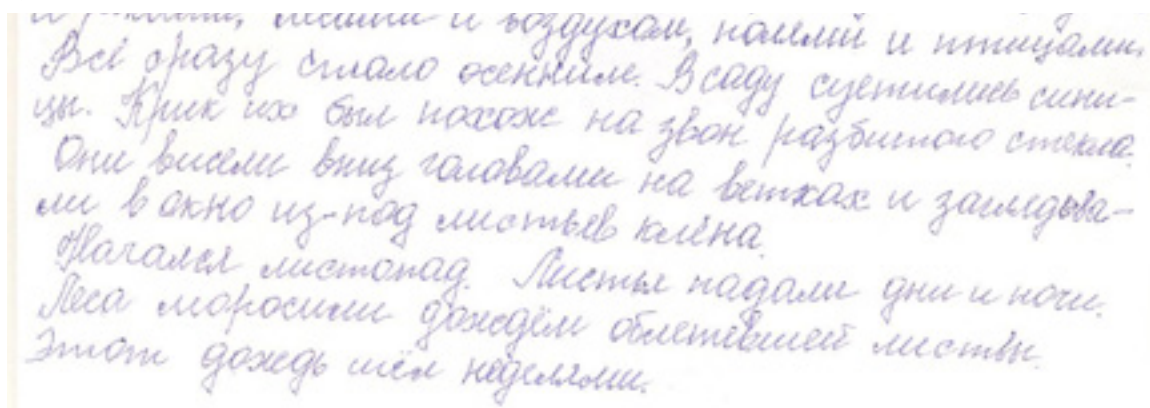 и воздухом, полями и птицами.
Всё сразу стало осенним. В саду суетились сини-
цы. Крик их был похож на звон разбитого стекла.
Они висели вниз головами на ветках и заглядыва-
ли в окно из-под листьев клёна.
Начался листопад. Листья падали дни и ночи.
Леса моросили дождём облетевшей листвы.
Этот дождь шёл неделями.